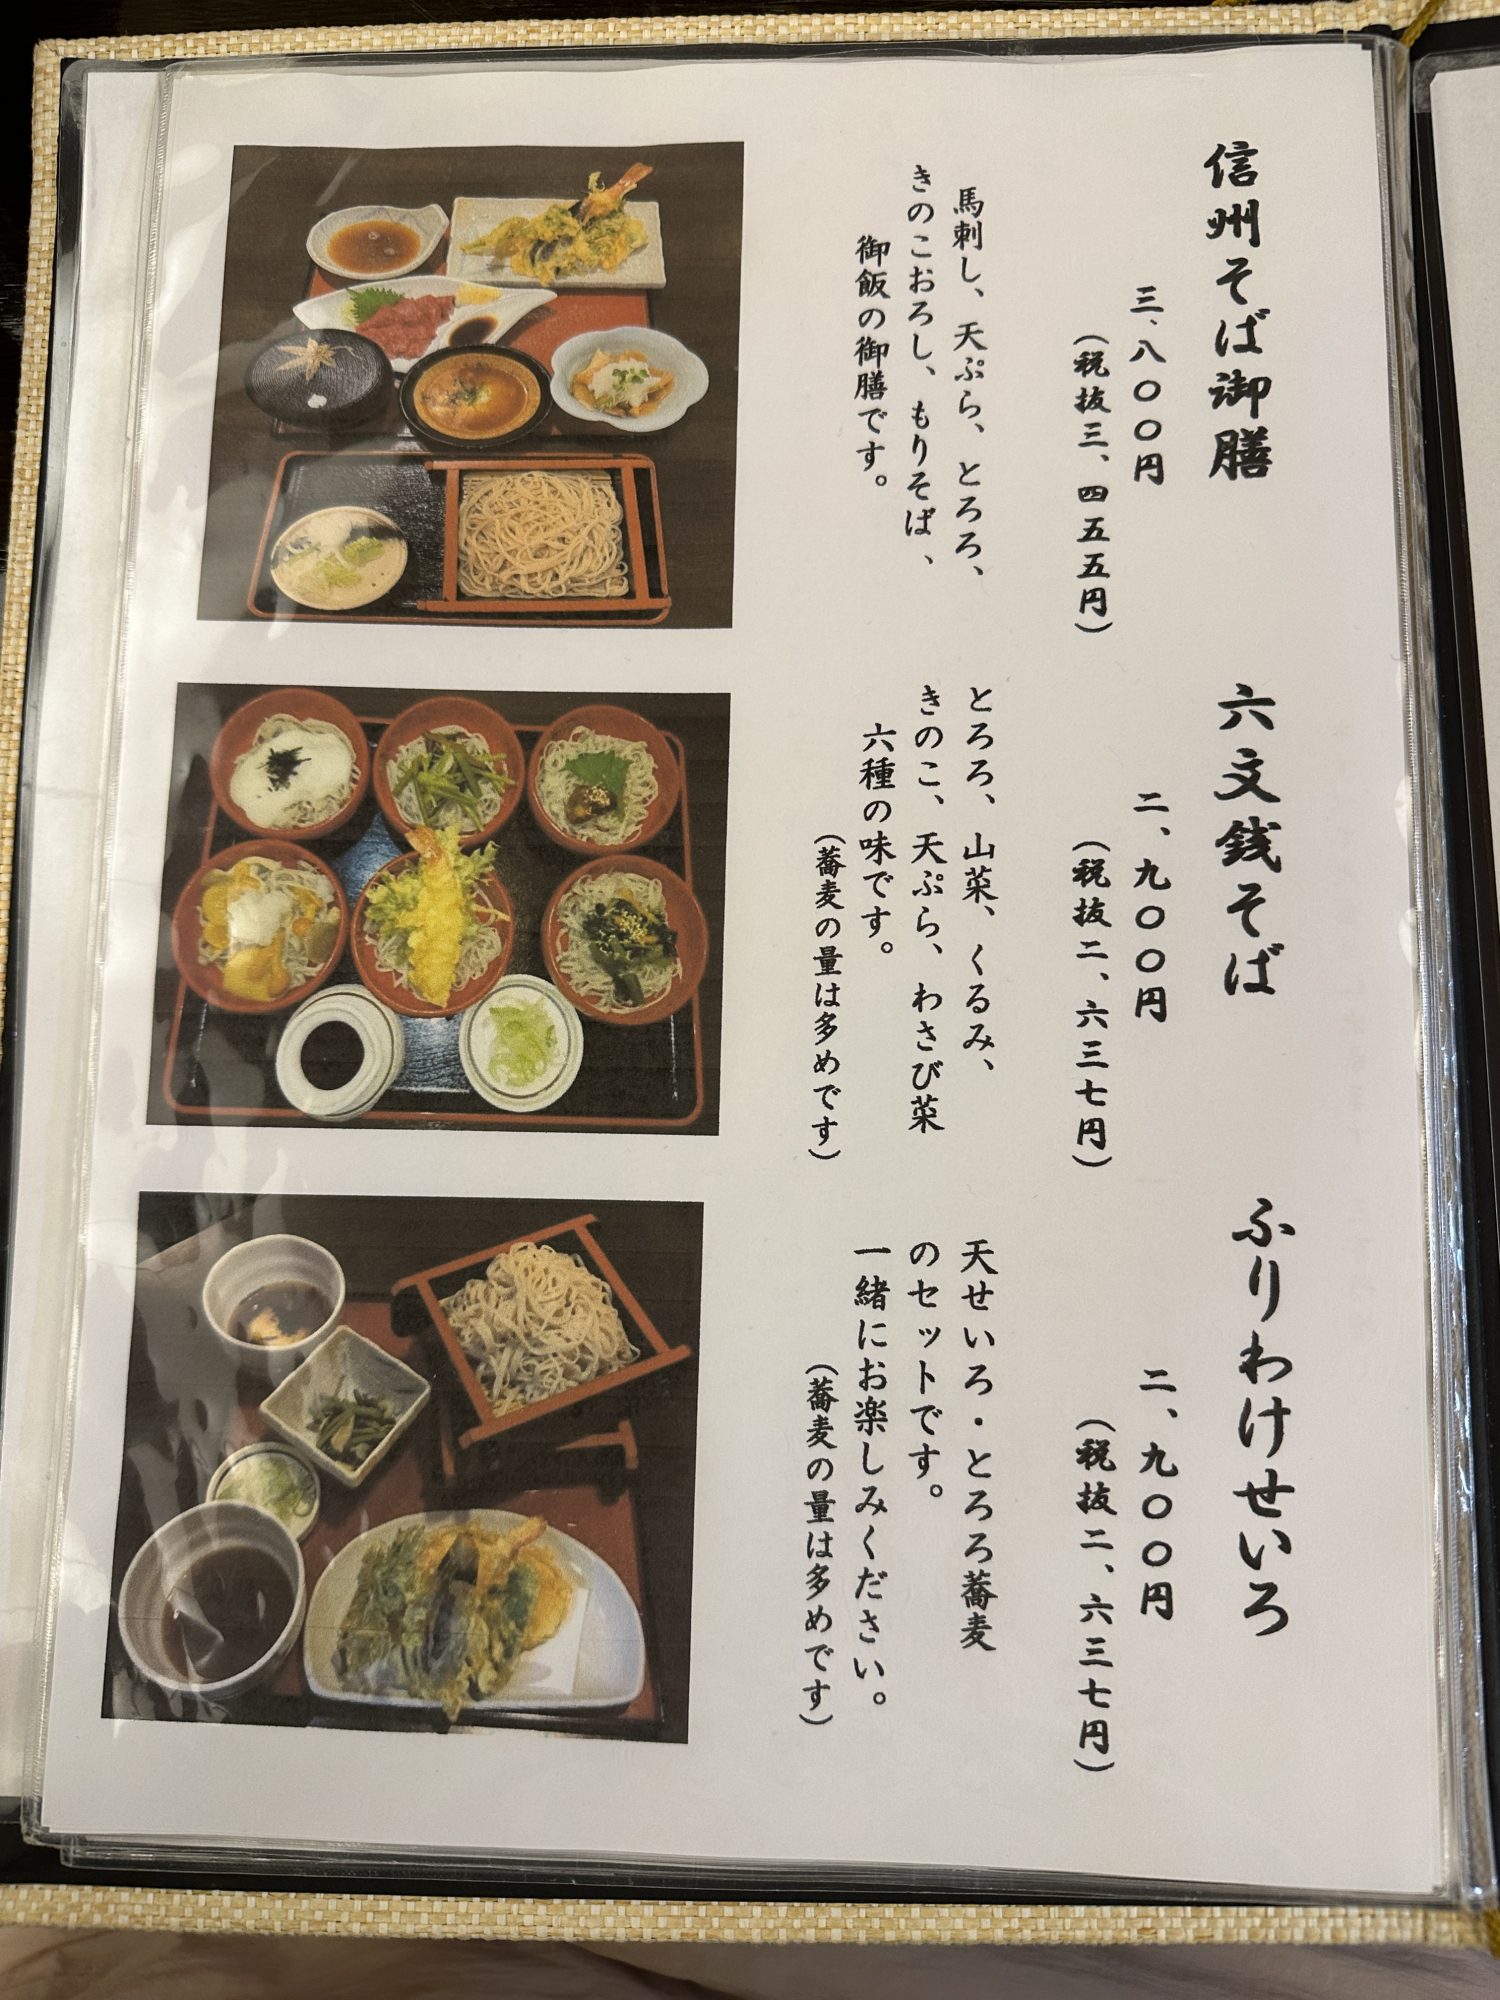 信州そば御膳
三、八〇〇円
（税抜三、四五五円）
馬刺し、天ぷら、とろろ、
きのこおろし、もりそば、
御飯の御膳です。
六文銭そば
二、九〇〇円
（税抜二、六三七円）
とろろ、山菜、くるみ、
きのこ、天ぷら、わさび菜
六種の味です。
（蕎麦の量は多めです）
ふりわけせいろ
二、九〇〇円
（税抜二、六三七円）
天せいろ・とろろ蕎麦
のセットです。
一緒にお楽しみください。
（蕎麦の量は多めです）